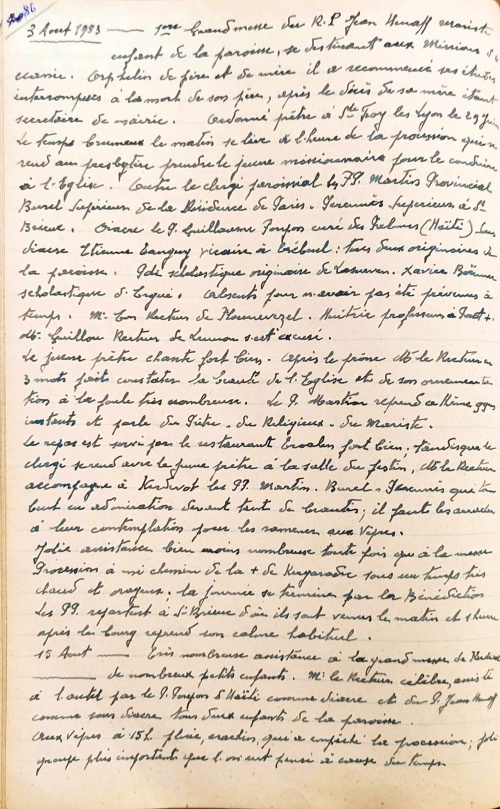 3 Aout 1953 — 1ère Grand messe du R.P Jean Henaff mariste
enfant de la paroisse, se destinant aux Missions d'O
céanie. Orphelin de père et de mère il a recommencé ses études
interrompues à la mort de son père, après le décès de sa mère étant
secrétaire de mairie. Ordonné prêtre à Ste Foy les Lyon le 29 Juin
Le temps brumeux le matin se lève à l'heure de la procession qui se
rend au presbytère prendre le jeune missionnaire pour le conduire
à l'Eglise. Outre le clergé paroissial les PP. Martin Provincial
Burel Supérieur de la Résidence de Paris. Supérieur à St
Brieuc. Diacre le P. Guillaume curé des (Haïti) Sous
diacre Etienne Tanguy vicaire à : tous deux originaires de
la paroisse. scholastique originaire de Lesneven. Xavier
scholastique d'Ergué. Absents pour n'avoir pas été prévenus à
temps. Mr Recteur de Plounevezel. professeur à
Mr. Guillou Recteur de s'est excusé.
Le jeune prêtre chante fort bien. Après le prône Mr le Recteur en
3 mots fait constater la beauté de l'Eglise et de son ornementa
tion à la foule très nombreuse. Le P. Martin reprend ce thème qqs
instants et parle du Prêtre - du Religieux - du Mariste.
Le repas est servi par le restaurant fort bien. Tandis que le
clergé se rend avec le jeune prêtre à la salle du festin, Mr le Recteur
accompagne à Kerdévot les PP. Martin. Burel - qui tom
bent en admiration devant tant de beautés ; il faut les arracher
à leur contemplation pour les ramener aux Vêpres.
Jolie assistance bien moins nombreuse toute fois qu'à la messe
Procession à mi chemin de la + de sous un temps très
chaud et orageux. la journée se termine par la Bénédiction
Les PP. repartent à St Brieuc d'où ils sont venus le matin et 1 heure
après le bourg reprend son calme habituel.
15 Aout — Très nombreuse assistance à la grand messe de Kerdévot
de nombreux petits enfants. Mr le Recteur célèbre, assisté
à l'autel par le P. d'Haïti comme diacre et du P. Jean Henaff
comme sous diacre tous deux enfants de la paroisse.
Aux Vêpres à 15 h. pluie, crachin, qui a empêché la procession ; joli
groupe plus important que l'on eut pensé à cause du temps.